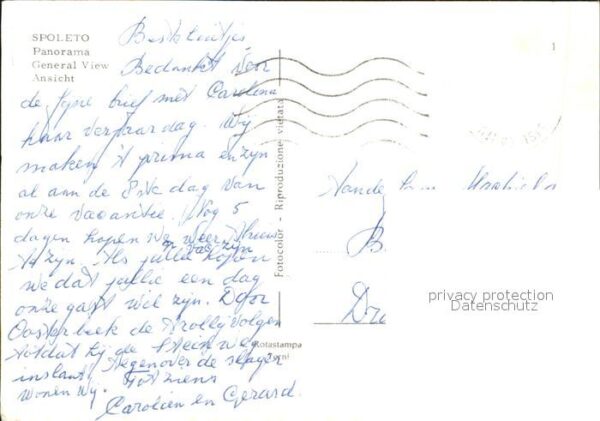 SPOLETO
Panorama
General View
Ansicht
Bedankt voor
de fijne brief met Carolina
haar verjaardag. Wij
maken 't prima en zijn
al aan de 8ste dag van
onze vacantie. Nog 5
dagen hopen we weer thuis
te zijn. Als jullie
we dat jullie een dag
onze gast wil zijn. Door
Oosterbeek de Trolly volgen
totdat bij de
instant, tegenover de slager
wonen wij. Tot ziens
Carolien en Gerard.
Fotocolor - Riproduzione vietata
Rotastampa
Terni
1
Aan de
B.
Dri
privacy protection
Datenschutz